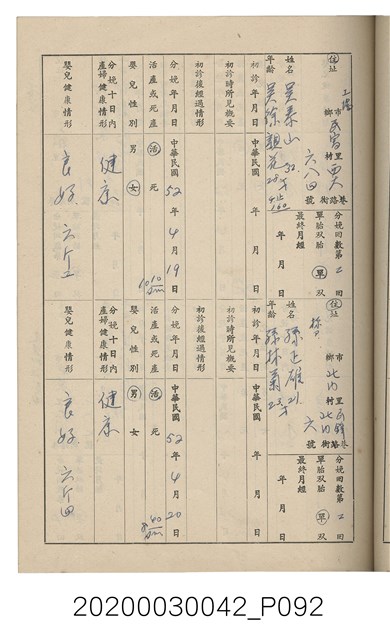 住址
市鄉
里村
巷路街
六八四號
分娩回數第二回
單胎双胎 單
最終月經 年 月 日
姓名 吳泰山 32
年齡 吳徐親花 28才
初診 年 月 日
初診時所見概要
初診後經過情形
分娩年月日 中華民國52年4月19日
活產或死產 活 死
嬰兒性別 男 女
分娩十日內產婦健康情形 健康
嬰兒健康情形 良好 六斤二
住址
市鄉
北內里村
巷路街
六號
分娩回數第二回
單胎双胎 單
最終月經 年 月 日
姓名 孫正雄
年齡 孫林菊 23才
初診 年 月 日
初診時所見概要
初診後經過情形
分娩年月日 中華民國52年4月20日
活產或死產 活 死
嬰兒性別 男 女
分娩十日內產婦健康情形 健康
嬰兒健康情形 良好 六斤四
20200030042_P092